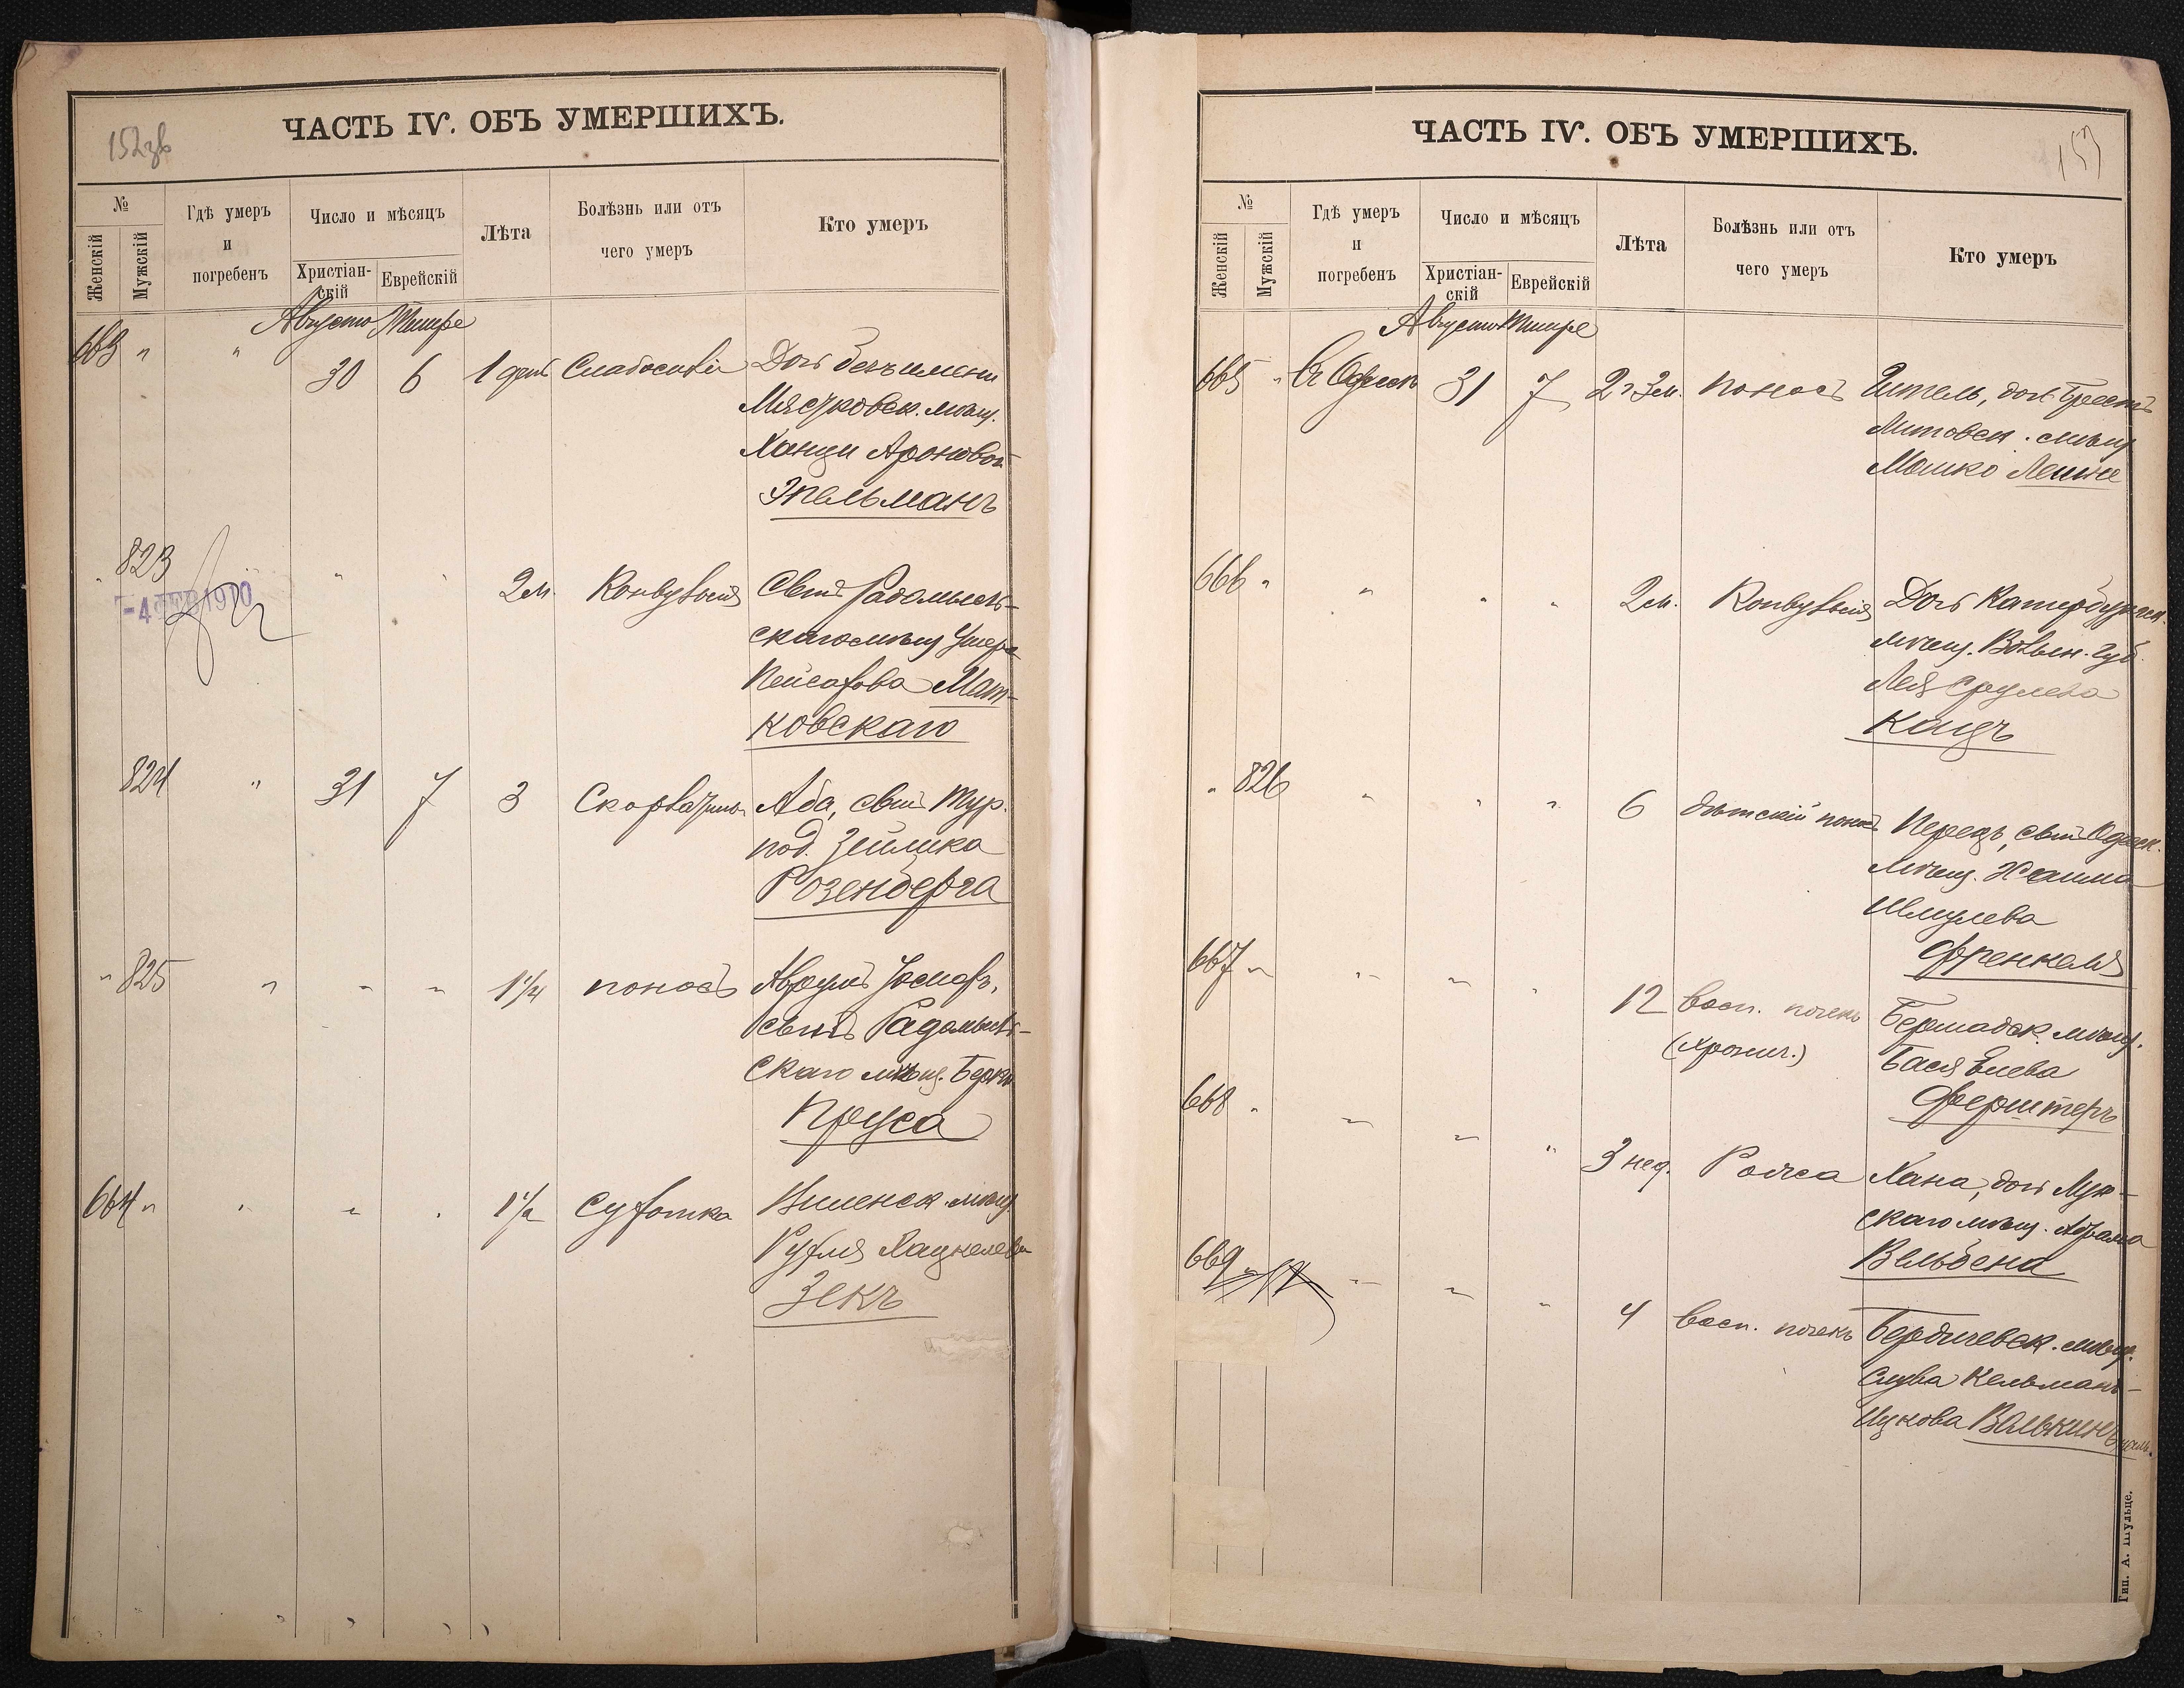 152зв
ЧАСТЬ IV. ОБЪ УМЕРШИХЪ.
№
Женскій
Мужскій
Гдѣ умеръ
и
погребенъ
Число и мѣсяцъ
Христіан-
скій
Еврейскій
Лѣта
Болѣзнь или отъ
чего умеръ
Кто умеръ
Августъ Тишре
663 " " 30 6 1 день Слабосиліе Дочь безъ имени
Мястковск. мѣщ.
Ханци Ароновой
Эпельманъ
" 823 " " " 2 м. Конвульсія Сынъ Радомысль-
скаго мѣщ. Ушера
Пейсахова Мат-
ковскаго
-4 ФЕВ 1910
824 " 31 7 3 Скарлатина Аба, сынъ Тур.
под. Зейлика
Розенберга
" 825 " " " 1 1/4 поносъ Аврумъ Іосифъ,
сынъ Радомысль-
скаго мѣщ. Берки
Пруса
664 " " " " 1 1/2 Сухотка Виленск. мѣщ.
Рухля Хацкелева
Зекъ
153
ЧАСТЬ IV. ОБЪ УМЕРШИХЪ.
№
Женскій
Мужскій
Гдѣ умеръ
и
погребенъ
Число и мѣсяцъ
Христіан-
скій
Еврейскій
Лѣта
Болѣзнь или отъ
чего умеръ
Кто умеръ
Августъ Тишре
665 " Въ Одессѣ 31 7 2 г 3 м. поносъ Гитель, дочь Брестъ
Литовск. мѣщ.
Мошко
666 " " " " 2 м. Конвульсія Дочь Катербургск.
мѣщ. Волын. губ.
Лея Срулева
Кацъ
" 826 " " " 6 дѣтскій поносъ Перецъ, сынъ Одесск.
мѣщ. Хаима
Шмулева
Френкеля
667 " " " " 12 Восп. почекъ Бершадск. мѣщ.
(хронич.) Бася Елева
Ферштеръ
668 " " " " 3 нед. Рожа Хана, дочь Луц-
скаго мѣщ. Абрама
Вельбена
669 " " " " 4 Восп. почекъ Бердичевск. мѣщ.
Слува Кельманъ-
Ицкова
Тип. А. Шульце.